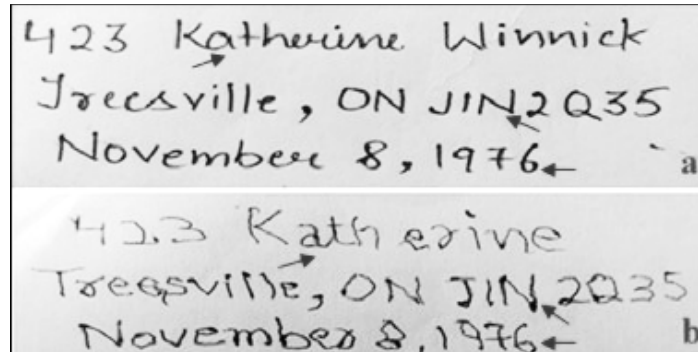 423 Katherine Winnick
Treesville, ON JIN2Q35
November 8, 1976
a
423 Katherine
Treesville, ON JIN 2Q35
November 8, 1976
b